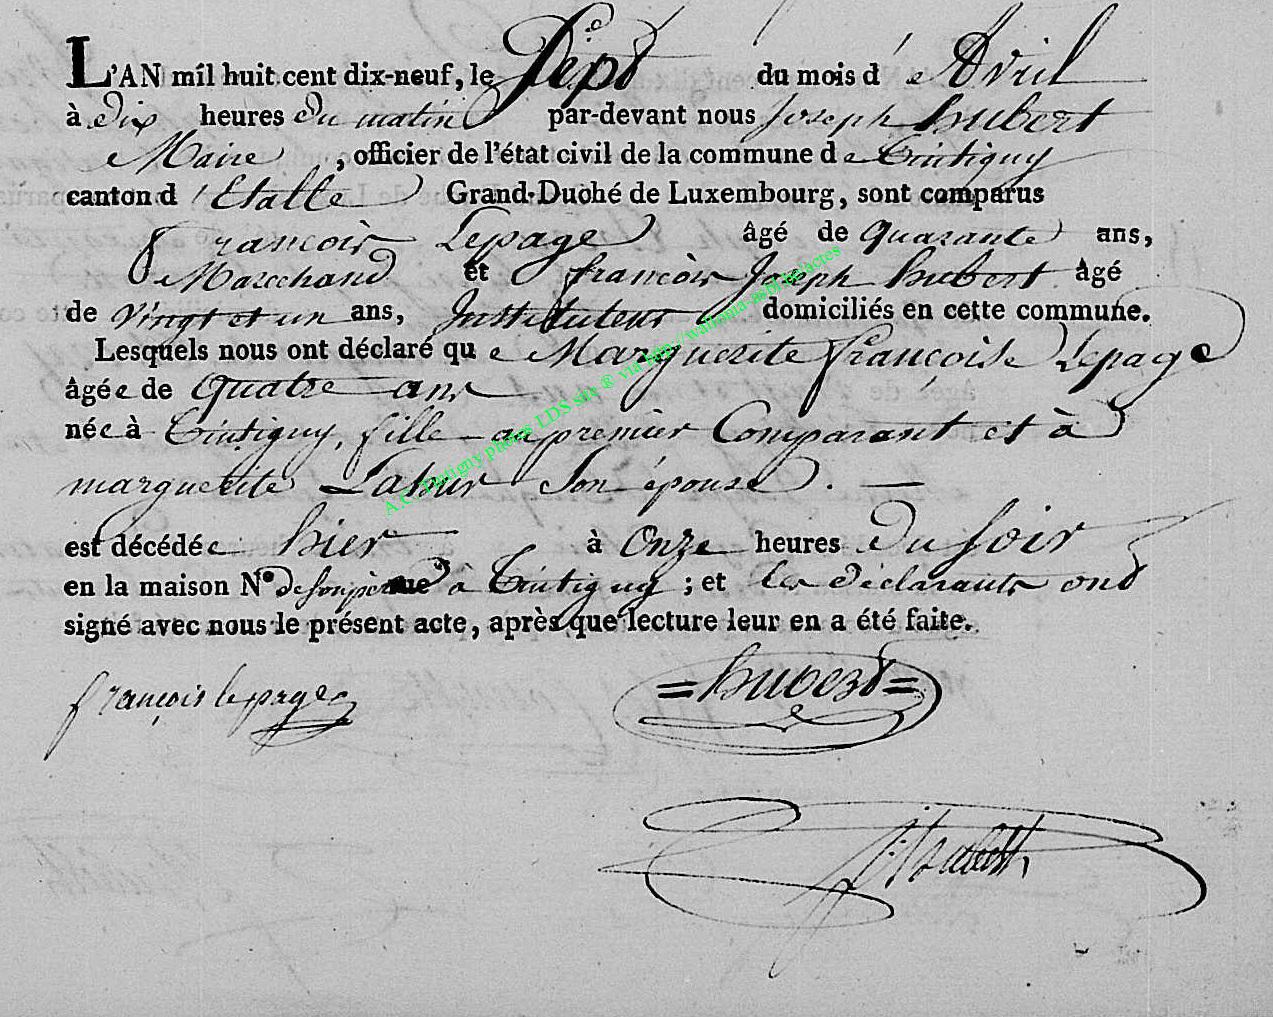 L'AN mil huit cent dix-neuf, le Sept du mois d'e Avril
à dix heures du matin par-devant nous Joseph hubert
Maire, officier de l'état civil de la commune de tintigny
canton d'Etalle Grand-Duché de Luxembourg, sont comparus
françois Lepage âgé de quarante ans,
Marchand et françois Joseph hubert âgé
de vingt et un ans, Instituteur domiciliés en cette commune.
Lesquels nous ont déclaré que Marguerite françoise Lepage
âgée de quatre ans
née à tintigny, fille au premier Comparant et à
marguerite Lahur Son épouse. —
est décédée hier à Onze heures du Soir
en la maison N.º de son père rue à tintigny ; et les déclarants ont
signé avec nous le présent acte, après que lecture leur en a été faite.
françois lepage =hubert=
A.C. Tintigny photos LDS site ® via http://wallonia-asbl.be/actes